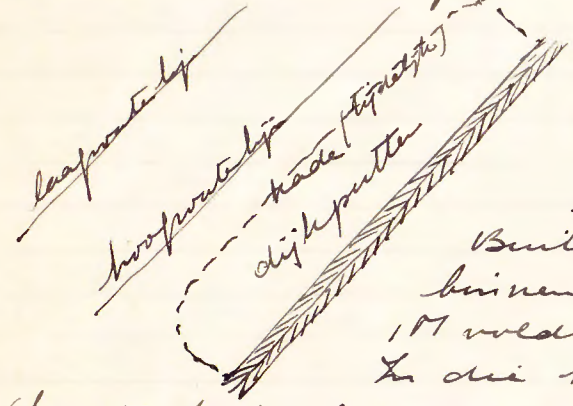 laagwaterlijn
hoogwaterlijn
kade (tijdelijk)
dijkputten
Buit
binnen
1M vold
In die